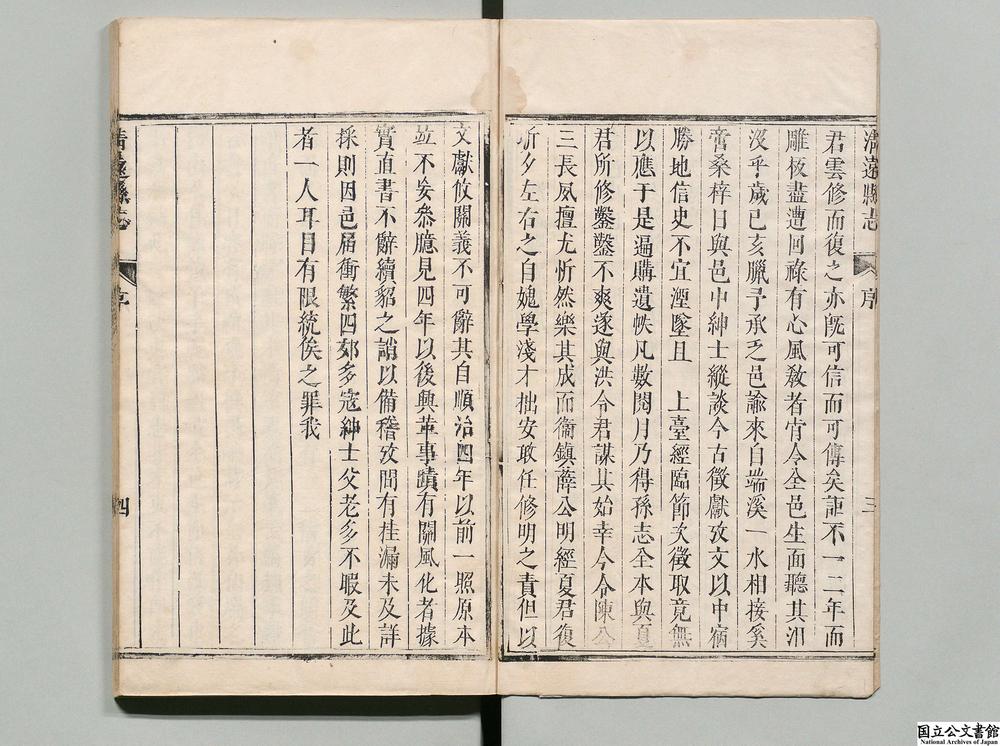 清遠縣志 序 三
君雲修而復之亦旣可信而可傳矣詎不一二年而
雕板盡遭回祿有心風教者肯令全邑生面聽其汨
沒乎歲己亥臘予承乏邑諭來自端溪一水相接奚
啻桑梓日與邑中紳士縱談今古徵獻攷文以中宿
勝地信史不宜湮墜且 上臺經臨節次徵取竟無
以應于是遍購遺帙凡數閱月乃得孫志全本與夏
君所修鑿鑿不爽遂與洪令君謀其始幸今令陳公
三長夙擅尤忻然樂其成而衞鎮薛公明經夏君復
昕夕左右之自媿學淺才拙安敢任修明之責但以
文獻攸關義不可辭其自順治四年以前一照原本
竝不妄參臆見四年以後興革事蹟有關風化者據
實直書不辭續貂之誚以備稽攷間有挂漏未及詳
採則因邑居衝繁四郊多寇紳士父老多不暇及此
者一人耳目有限統俟之罪我
清遠縣志 序 四
国立公文書館
National Archives of Japan